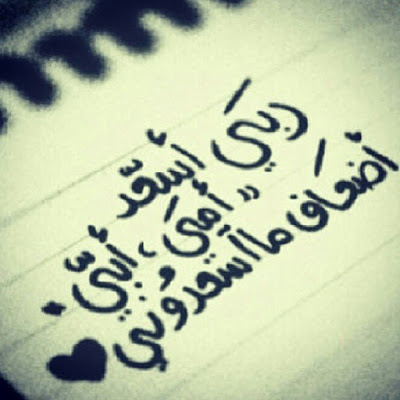 ربيَ أسعّد
" أميَ ، أبيّ "
أضعَاف ما أسعدوُني ♥